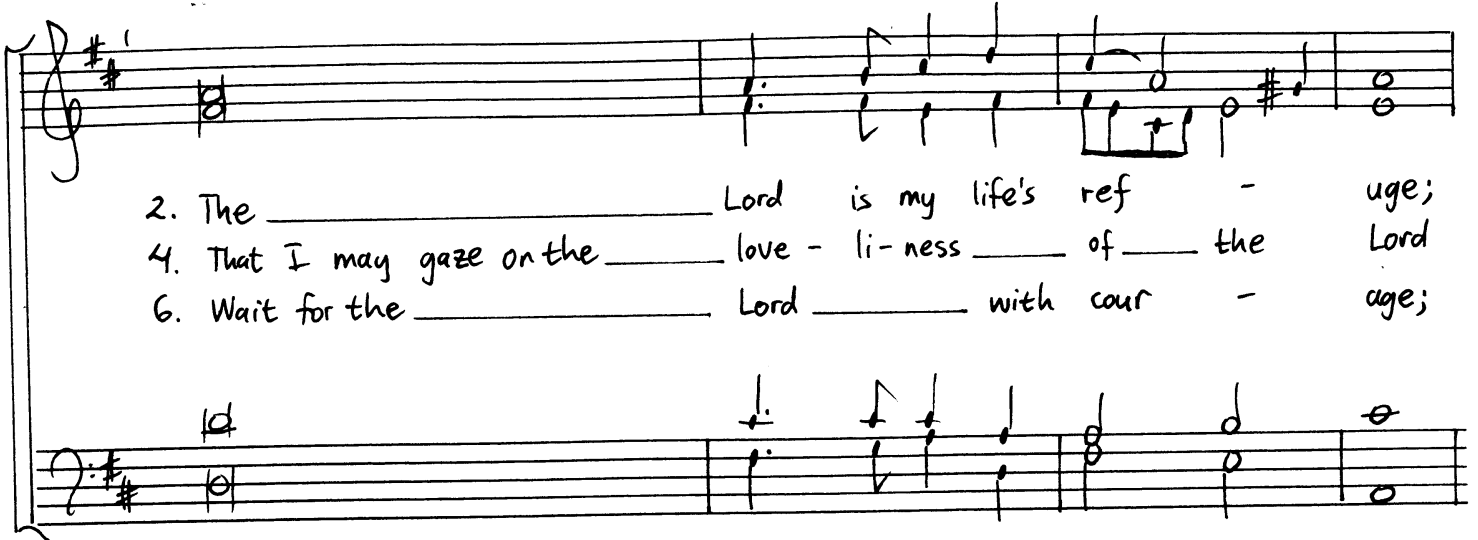 2. The ______ Lord is my life's ref - uge;
4. That I may gaze on the ______ love - li - ness ______ of ______ the Lord
6. Wait for the ______ Lord ______ with cour - age;